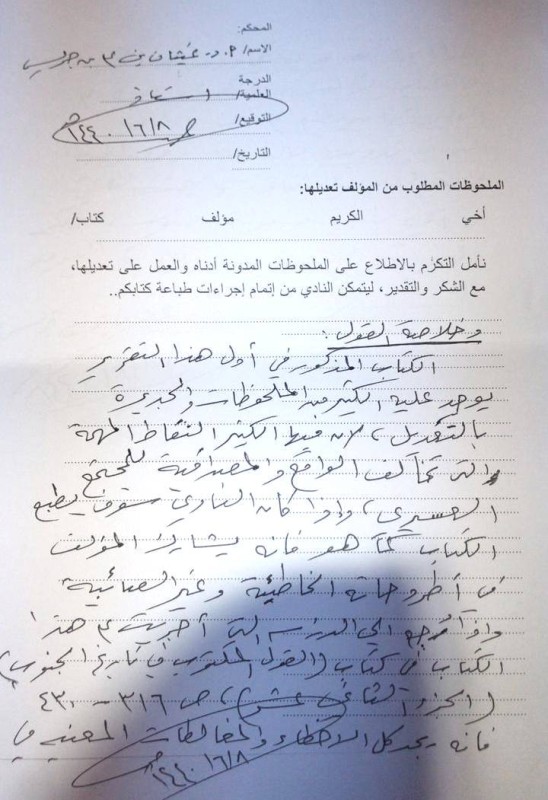 المحكم:
الاسم/ أ.د. غيثان بن علي بن جريس
الدرجة
العلمية/ استاذ
التوقيع/ ١٤٤٠/٦/٨هـ
التاريخ/
الملحوظات المطلوب من المؤلف تعديلها:
أخي الكريم مؤلف كتاب/
نأمل التكرّم بالاطلاع على الملحوظات المدونة أدناه والعمل على تعديلها،
مع الشكر والتقدير، ليتمكن النادي من إتمام إجراءات طباعة كتابكم..
وخلاصة القول:
الكتاب المذكور في أول هذا التقرير
يوجد عليه الكثير من الملحوظات والجديرة
بالتعديل، لان فيها الكثير النقاط المهمة
والتي تخالف الواقع والمصداقية للمجتمع
العسيري، وإذا كان النادي سوف يطبع
الكتاب كما هو فانه يشارك المؤلف
في أطروحاته الخاطئة وغير الصائبة
وإذا رجع الى الدراسه التي أجريت على هذا
الكتاب في كتاب (القول المكتوب في تاريخ الجنوب)
(الجزء الثاني عشر)، ص ٣١٦ - ٤٣٠
فانه يجد كل الاخطاء والمغالطات المعنيه في
١٤٤٠/٦/٨هـ